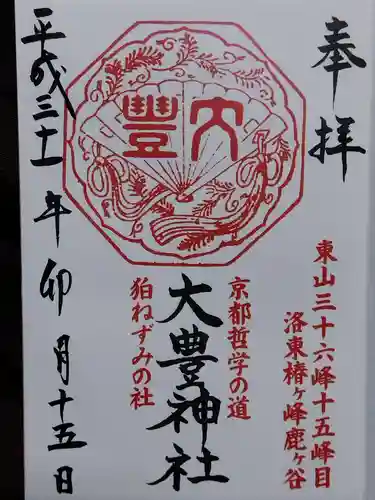 奉拝
東山三十六峰十五峰目
洛東椿ヶ峰鹿ヶ谷
大豊
京都哲学の道
大豊神社
狛ねずみの社
平成三十一年卯月十五日